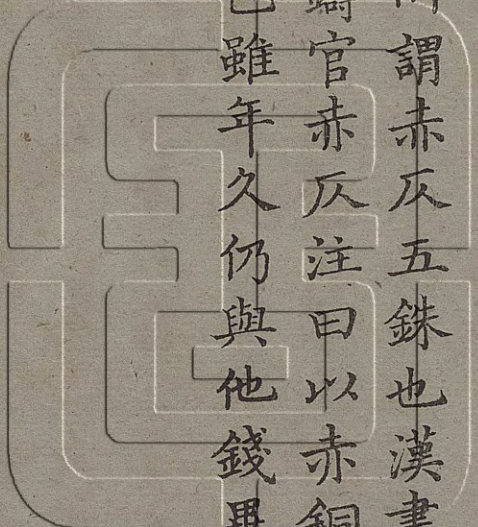 謂赤仄五銖也漢書
鑄官赤仄注曰以赤銅
雖年久仍與他錢異